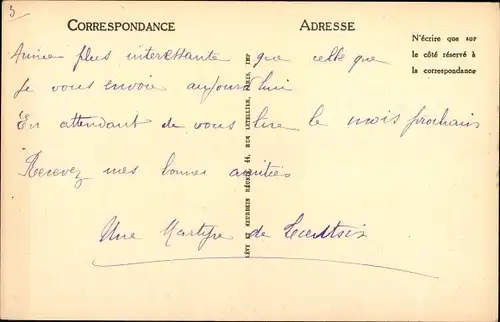 3
CORRESPONDANCE
ADRESSE
N'écrire que sur
le côté réservé à
la correspondance
plus interessante que celle que
Je vous envoie aujourd'hui
En attendant de vous lire le mois prochain
Recevez mes bonnes amitiés
Une Martyre de
LÉVY ET NEURDEIN RÉUNIS, 44, RUE LETELLIER, PARIS, IMP